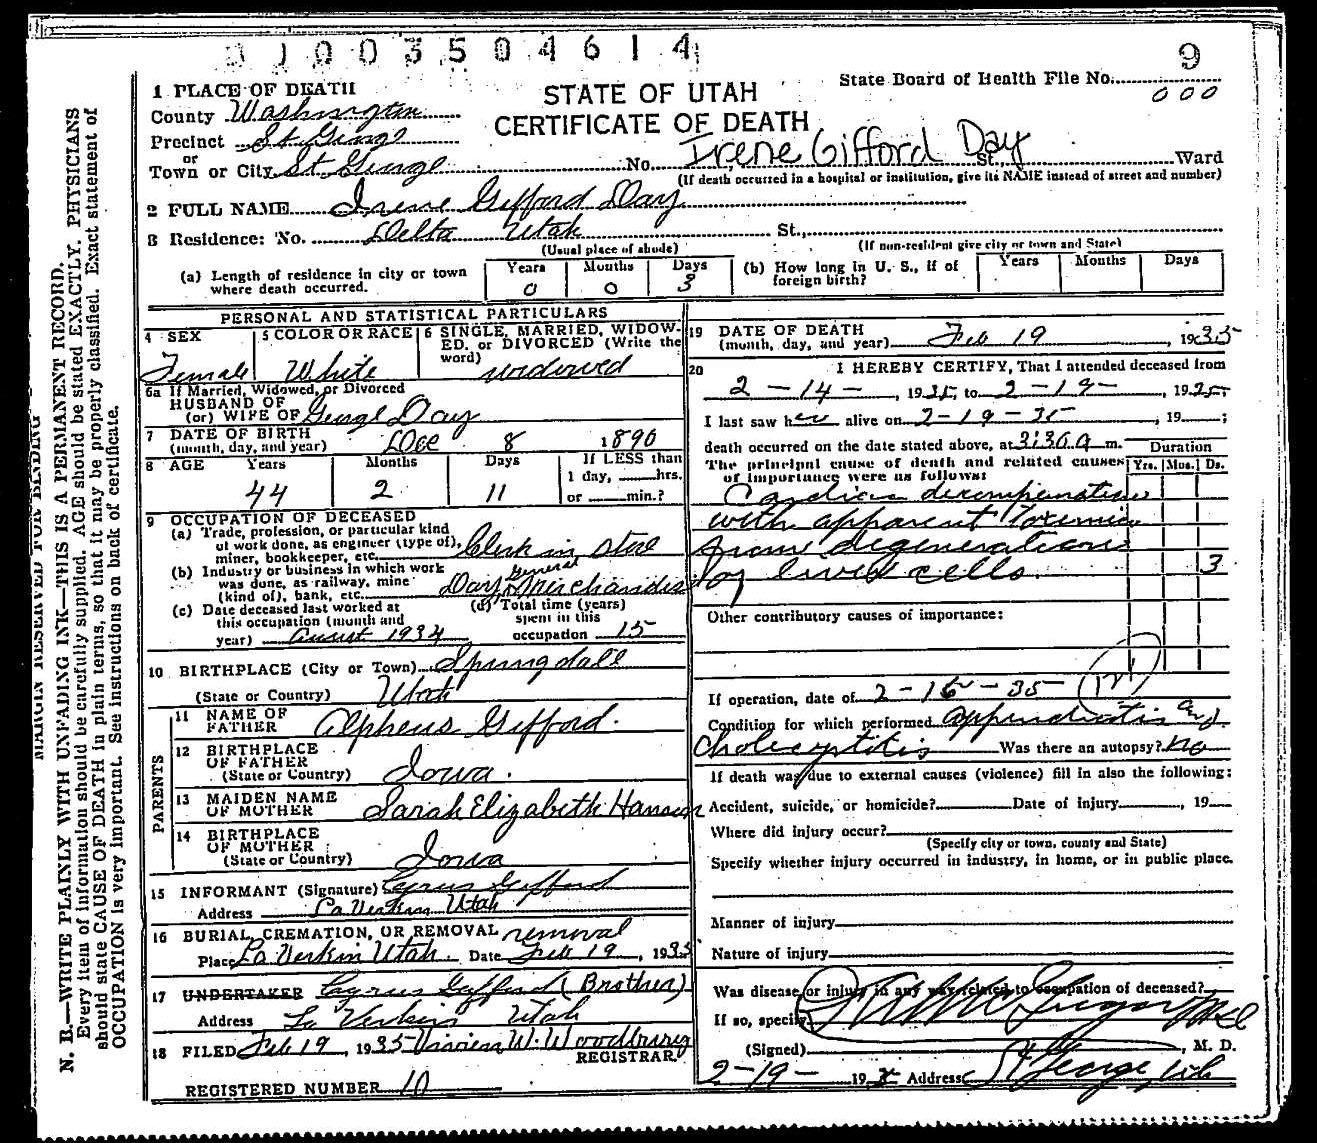 0 1 0 0 3 5 0 4 6 1 4
9
State Board of Health File No.
000
STATE OF UTAH
CERTIFICATE OF DEATH
1 PLACE OF DEATH
County Washington
Precinct St George
or
Town or City St George No. St., Ward
Irene Gifford Day
(If death occurred in a hospital or institution, give its NAME instead of street and number)
2 FULL NAME Irene Gifford Day
3 Residence: No. Delta Utah St.,
(Usual place of abode) (If non-resident give city or town and State)
(a) Length of residence in city or town where death occurred. Years 0 Months 0 Days 3
(b) How long in U. S., if of foreign birth? Years Months Days
PERSONAL AND STATISTICAL PARTICULARS
4 SEX Female
5 COLOR OR RACE White
6 SINGLE, MARRIED, WIDOWED, or DIVORCED (Write the word) widowed
6a If Married, Widowed, or Divorced
HUSBAND OF
(or) WIFE OF George Day
7 DATE OF BIRTH
(month, day, and year) Dec 8 1890
8 AGE Years 44 Months 2 Days 11
If LESS than
1 day, hrs.
or min.?
9 OCCUPATION OF DECEASED
(a) Trade, profession, or particular kind
of work done, as engineer (type of),
miner, bookkeeper, etc. Clerk in Store
(b) Industry or business in which work
was done, as railway, mine
(kind of), bank, etc. Day General Merchandise
(c) Date deceased last worked at
this occupation (month and
year) August 1934
(d) Total time (years)
spent in this
occupation 15
10 BIRTHPLACE (City or Town) Springdale
(State or Country) Utah
PARENTS
11 NAME OF FATHER Alpheus Gifford.
12 BIRTHPLACE OF FATHER
(State or Country) Iowa.
13 MAIDEN NAME OF MOTHER Sarah Elizabeth Hanson
14 BIRTHPLACE OF MOTHER
(State or Country) Iowa
15 INFORMANT (Signature) Cyrus Gifford
Address La Verkin Utah
16 BURIAL, CREMATION, OR REMOVAL removal
Place La Verkin Utah. Date Feb 19, 1935
17 UNDERTAKER Cyrus Gifford (Brother)
Address La Verkin Utah
18 FILED Feb 19, 1935 Vivien W. Woodbury
REGISTRAR.
REGISTERED NUMBER 10
19 DATE OF DEATH
(month, day, and year) Feb 19, 1935
20 I HEREBY CERTIFY, That I attended deceased from
2-14-, 1935, to 2-19-, 1935,
I last saw her alive on 2-19-35, 19 ;
death occurred on the date stated above, at 3:30 a m.
The principal cause of death and related causes
of importance were as follows:
Duration
Yrs. Mos. Ds.
Cardiac decompensation
with apparent toxemia
from degenerations
of liver cells. 3
Other contributory causes of importance:
If operation, date of 2-15-35
Condition for which performed appendicitis and
cholecystitis Was there an autopsy? no
If death was due to external causes (violence) fill in also the following:
Accident, suicide, or homicide? Date of injury , 19
Where did injury occur?
(Specify city or town, county and State)
Specify whether injury occurred in industry, in home, or in public place.
Manner of injury
Nature of injury
Was disease or injury in any way related to occupation of deceased?
If so, specify
(Signed) McGregor , M. D.
2-19- 1935 Address St George Utah
MARGIN RESERVED FOR BINDING
N. B.—WRITE PLAINLY WITH UNFADING INK—THIS IS A PERMANENT RECORD.
Every item of information should be carefully supplied. AGE should be stated EXACTLY. PHYSICIANS
should state CAUSE OF DEATH in plain terms, so that it may be properly classified. Exact statement of
OCCUPATION is very important. See instructions on back of certificate.